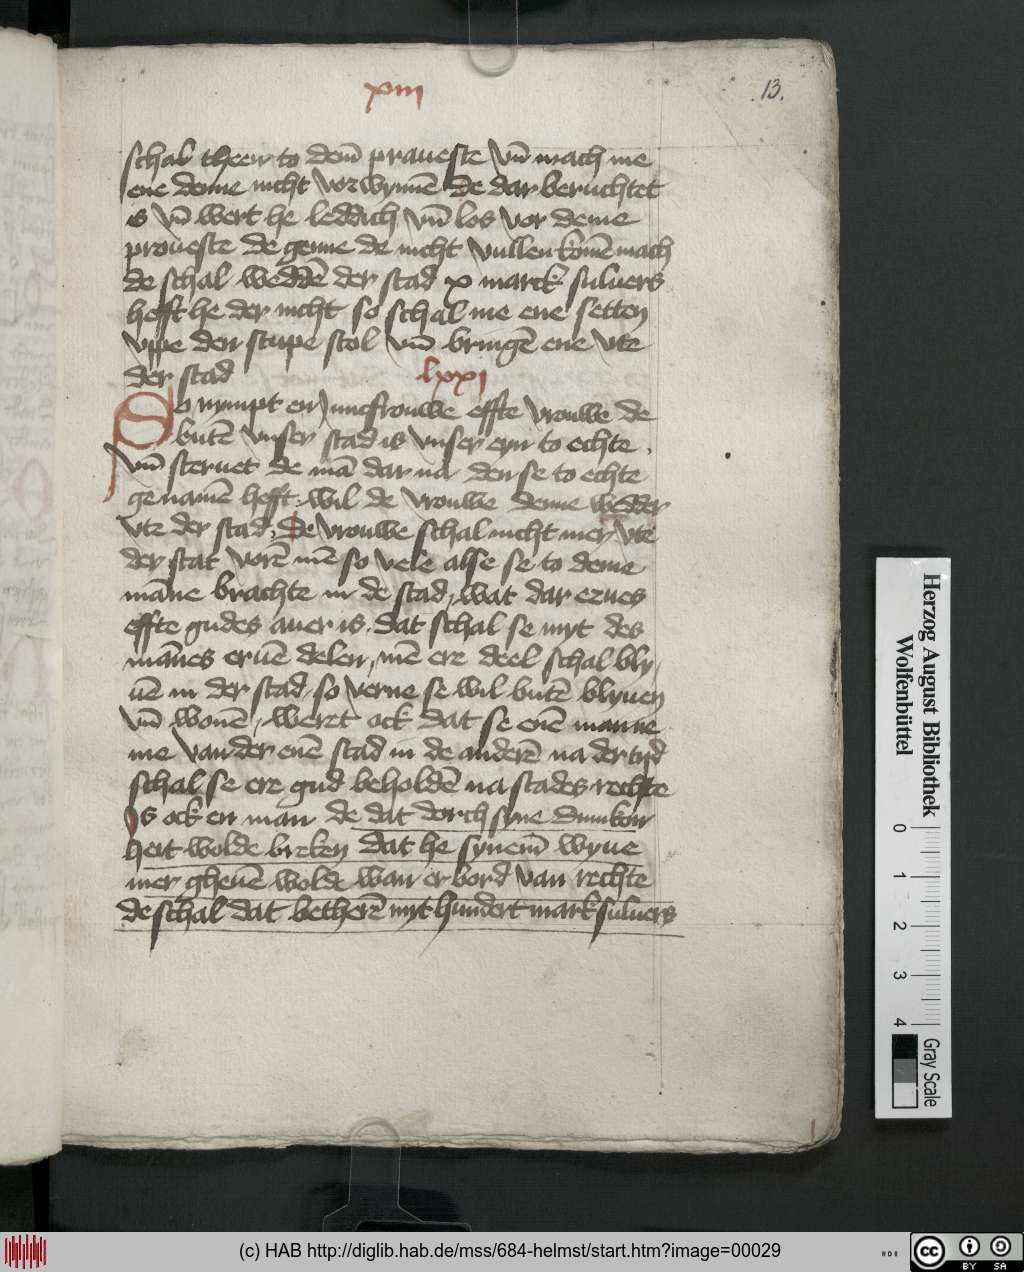 xiii
13.
schal theen to dem̄ praueste vn̄ mach me
ene denne nicht vorwynnē de dar beruchtet
is vn̄ wert he leddich vn̄ los vor deme
proueste de genne de nicht vullenkomē mach
de schal weddē der stad x marck suluers
hefft he der nicht so schal me ene setten
vppe den stupe stol vn̄ bringē ene vte
der stad
lxxi
So nympt en juncfrouwe effte vrouwe de
butē vnser stad is vnser eyn to echte .
vn̄ steruet de mā dar na den se to echte
genamē hefft . wil de vrouwe denne wedder
vte der stad , de vrouwe schal nicht mer vte
der stat vorē mē so vele alse se to deme
māne brachte in de stad , wat dar erues
effte gudes auer is . dat schal se myt des
mānes eruē delen , mē ere deel schal bly,
uē in der stad , so verne se wil butē blyuen
vn̄ wonē , weret ock dat se enē manne
me van der enē stad in de anderē na der tyd
schal se ere gud beholdē na stades rechte
Is ock en man de dat dorch syne dumkon
heit wolde breken dat he synem̄ wyue
mer gheuē wolde wan er bord van rechte
de schal dat betherē myt hundert mark suluers
Herzog August Bibliothek
Wolfenbüttel
0 1 2 3 4
Gray Scale
(c) HAB http://diglib.hab.de/mss/684-helmst/start.htm?image=00029
cc BY SA